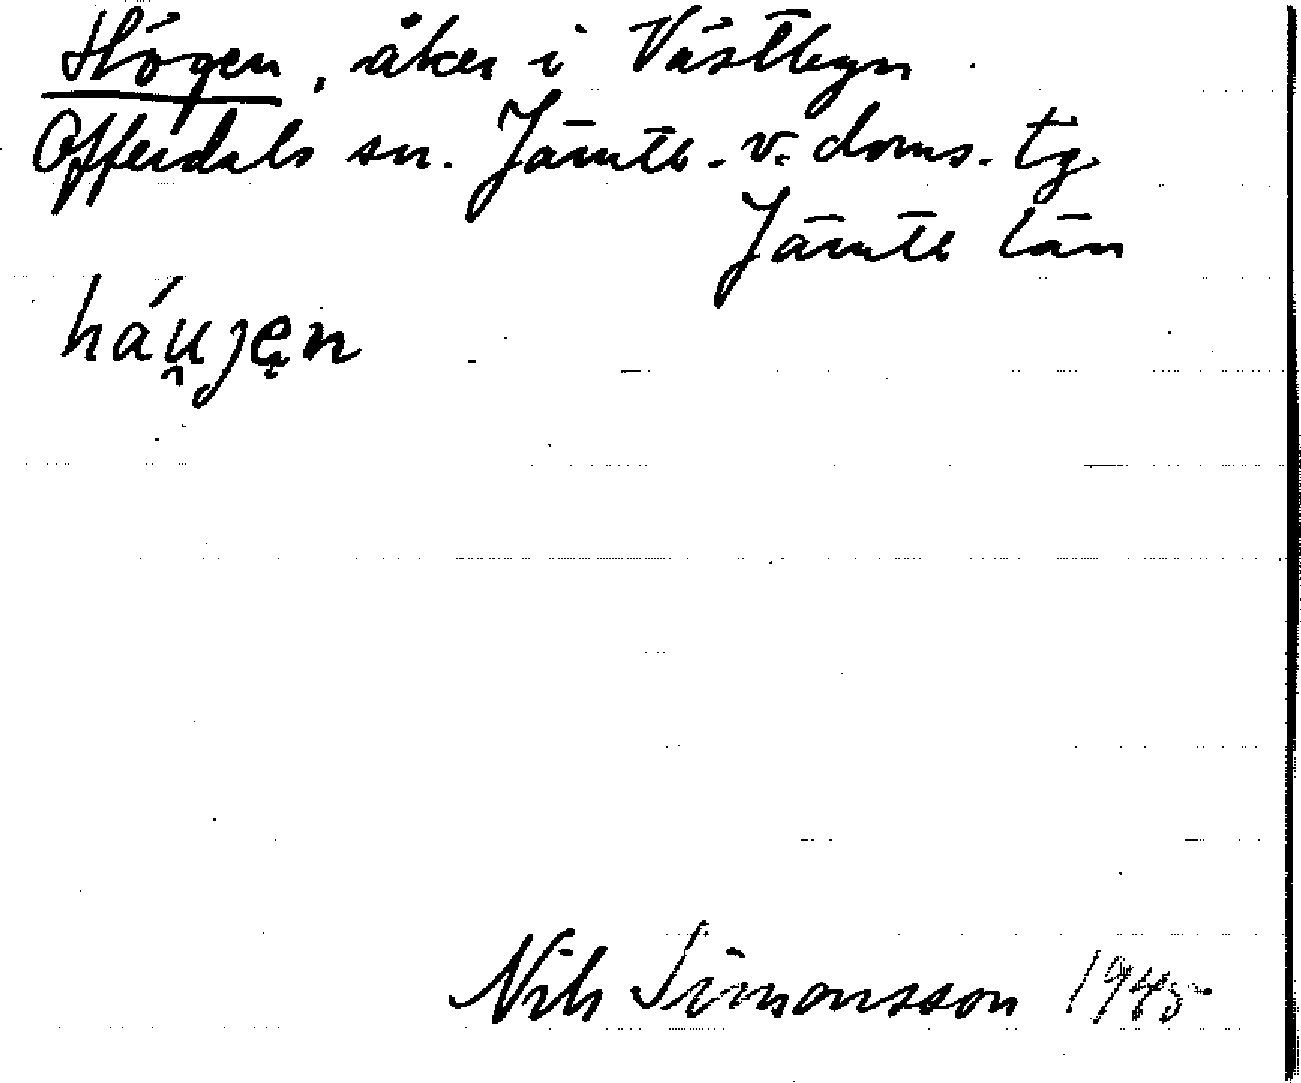 Högen, åker i Västbyn
Offerdals sn. Jämtl. v. doms. tg
Jämtl län
háu̯jęn
Nils Simonsson 1945